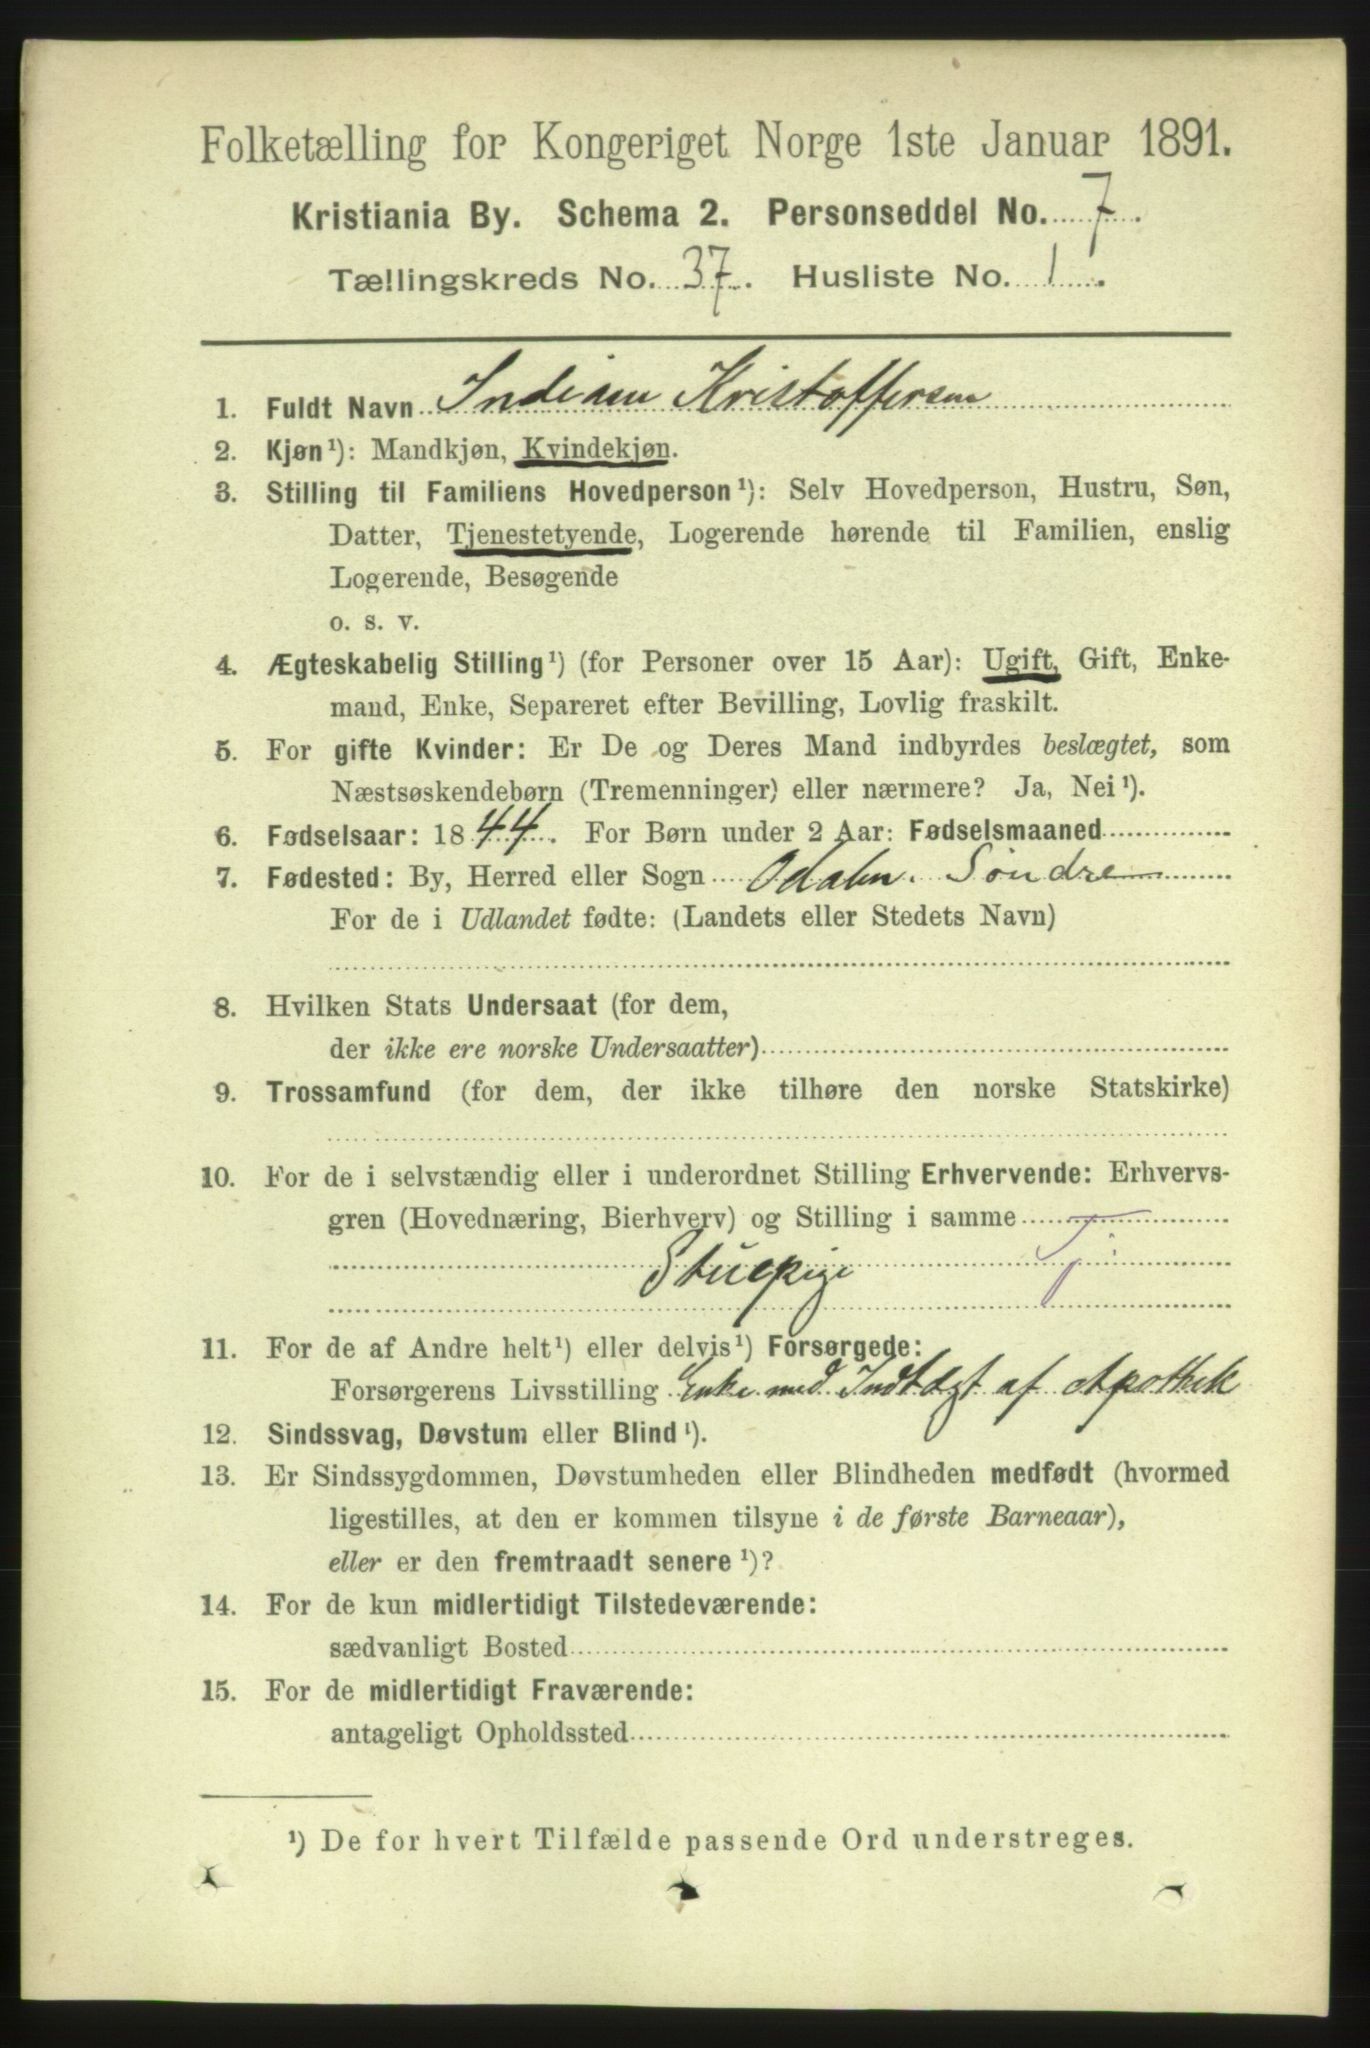 Folketælling for Kongeriget Norge 1ste Januar 1891.
Kristiania By. Schema 2. Personseddel No. 7.
Tællingskreds No. 37. Husliste No. 1.
1. Fuldt Navn Indiane Kristoffersen
2. Kjøn¹): Mandkjøn, Kvindekjøn.
3. Stilling til Familiens Hovedperson¹): Selv Hovedperson, Hustru, Søn,
Datter, Tjenestetyende, Logerende hørende til Familien, enslig
Logerende, Besøgende
o. s. v.
4. Ægteskabelig Stilling¹) (for Personer over 15 Aar): Ugift, Gift, Enke-
mand, Enke, Separeret efter Bevilling, Lovlig fraskilt.
5. For gifte Kvinder: Er De og Deres Mand indbyrdes beslægtet, som
Næstsøskendebørn (Tremenninger) eller nærmere? Ja, Nei¹).
6. Fødselsaar: 1844. For Børn under 2 Aar: Fødselsmaaned
7. Fødested: By, Herred eller Sogn Odalen. Søndre
For de i Udlandet fødte: (Landets eller Stedets Navn)
8. Hvilken Stats Undersaat (for dem,
der ikke ere norske Undersaatter)
9. Trossamfund (for dem, der ikke tilhøre den norske Statskirke)
10. For de i selvstændig eller i underordnet Stilling Erhvervende: Erhvervs-
gren (Hovednæring, Bierhverv) og Stilling i samme
Stuepige Tj:
11. For de af Andre helt¹) eller delvis¹) Forsørgede:
Forsørgerens Livsstilling Enke med Indtægt af Apothek
12. Sindssvag, Døvstum eller Blind¹).
13. Er Sindssygdommen, Døvstumheden eller Blindheden medfødt (hvormed
ligestilles, at den er kommen tilsyne i de første Barneaar),
eller er den fremtraadt senere¹)?
14. For de kun midlertidigt Tilstedeværende:
sædvanligt Bosted
15. For de midlertidigt Fraværende:
antageligt Opholdssted
¹) De for hvert Tilfælde passende Ord understreges.